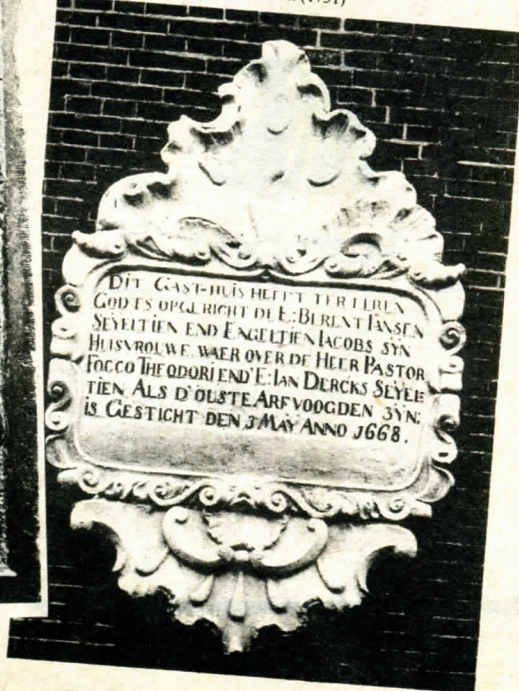 (1751)
DIT GAST-HUIS HEEFT TER EEREN
GODTS OPGERICHT DE E: BERENT IANSEN
SEYELTIEN END ENGELTIEN IACOBS SYN
HUISVROUWE. WAER OVER DE HEER PASTOR
FOCCO THEODORI END'E: IAN DERCKS SEYEL:
TIEN ALS D'OUSTE ARFVOOGDEN ZYN:
IS GESTICHT DEN 3 MAY ANNO 1668.